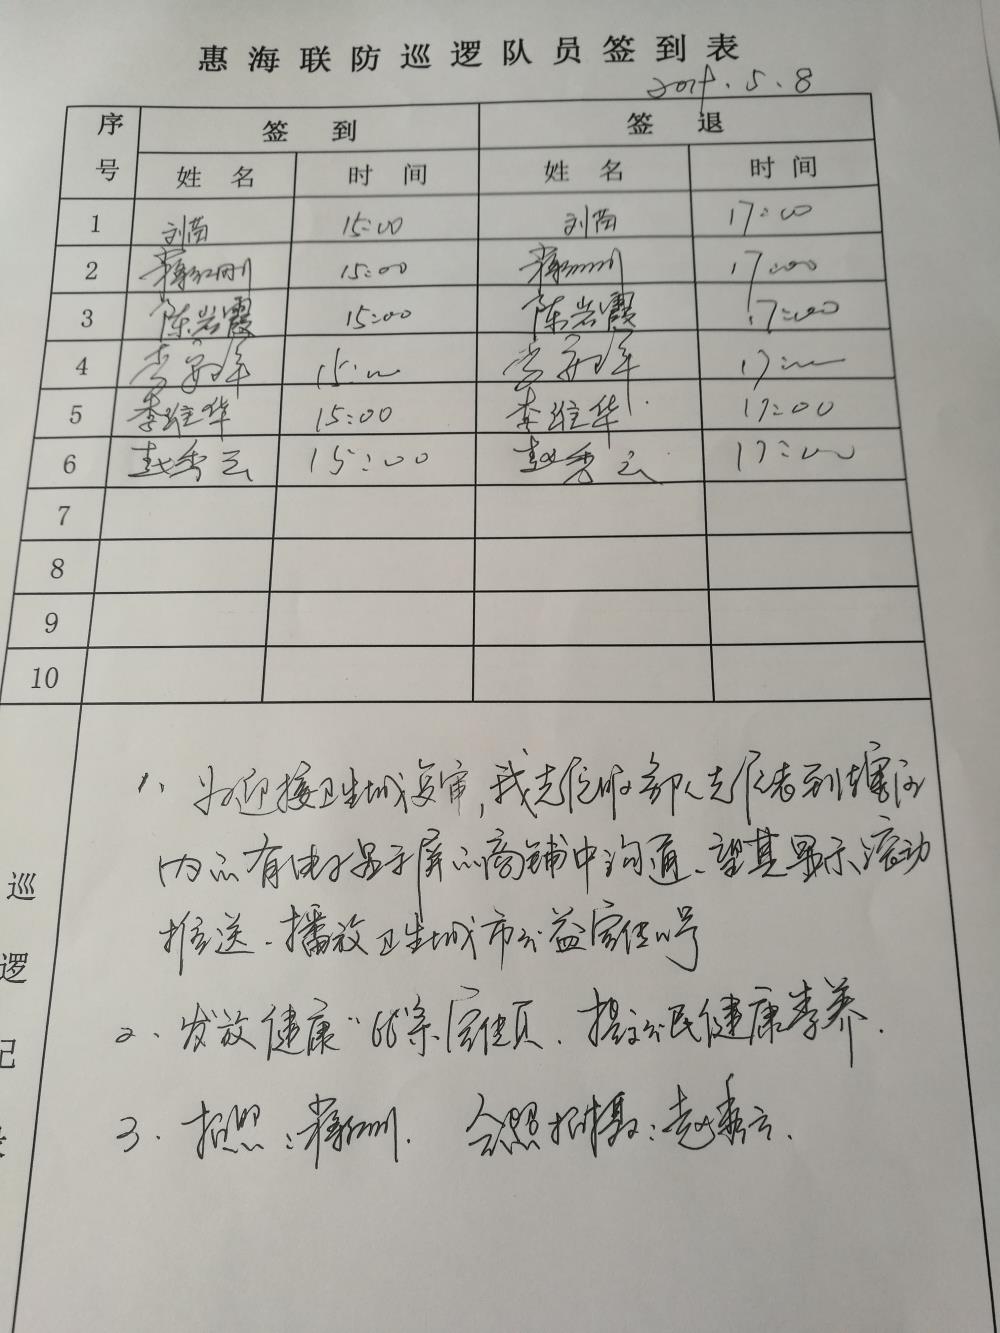 惠海联防巡逻队员签到表
2019.5.8
序号 签到 签退
姓名 时间 姓名 时间
1 刘茵 15:00 刘茵 17:00
2 15:00 17:00
3 陈岩霞 15:00 陈岩霞 17:00
4 15:00 17:00
5 李维华 15:00 李维华 17:00
6 赵秀云 15:00 赵秀云 17:00
7
8
9
10
巡逻记录
1、为迎接卫生城复审,我志愿服务队志愿者到辖区
内的有电子显示屏的商铺中沟通、望其显示、滚动
推送、播放卫生城市公益宣传口号
2、发放健康"66条"宣传页、提高公民健康素养.
3、拍照: 合照拍摄:赵秀云.